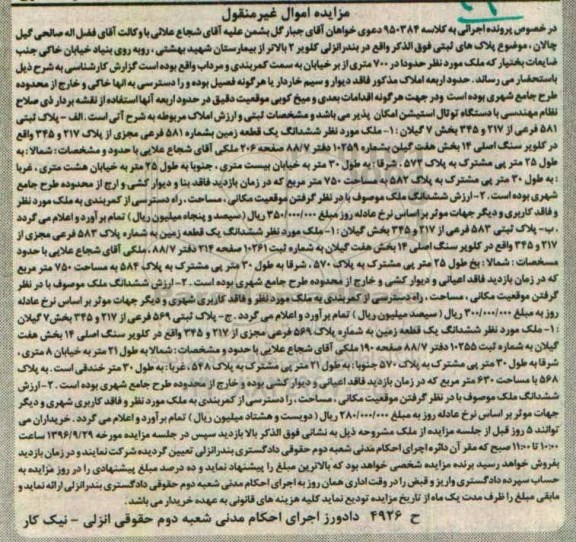 مزایده اموال غیرمنقول
در خصوص پرونده اجرائی به کلاسه ۹۵۰۳۸۴ دعوی خواهان آقای جبار گل بشمن علیه آقای شجاع علائی با وکالت آقای فضل اله صالحی گیل
چالان ، موضوع پلاک های ثبتی فوق الذکر واقع در بندرانزلی کلویر ۲ بالاتر از بیمارستان شهید بهشتی ، روبه روی بنیاد خیابان خاکی جنب
ضایعات بختیار که ملک مورد نظر حدودا در ۷۰۰ متری از بر خیابان به سمت کمربندی و مرداب واقع بوده است گزارش کارشناسی به شرح ذیل
باستحضار می رساند. حدود اربعه املاک مذکور فاقد دیوار و سیم خاردار یا هرگونه فصیل بوده و را دسترسی به آنها خاکی و خارج از محدوده
طرح جامع شهری بوده است ودر جهت هرگونه اقدامات بعدی و میخ کوبی موقعیت دقیق در حدود اربعه آنها استفاده از نقشه بردار ذی صلاح
نظام مهندسی با دستگاه توتال استیشن امکان پذیر می باشد و مشخصات ثبتی و ارزش املاک مربوطه به شرح آتی است. الف - پلاک ثبتی
۵۸۱ فرعی از ۲۱۷ و ۳۴۵ بخش ۷ گیلان : ۱- ملک مورد نظر ششدانگ یک قطعه زمین بشماره ۵۸۱ فرعی مجزی از پلاک ۲۱۷ و ۳۴۵ واقع
در کلویر سنگ اصلی ۱۴ بخش هفت گیلن بشماره ۱۰۲۵۹ دفتر ۸۸/۷ صفحه ۲۰۶ ملکی آقای شجاع علایی با حدود و مشخصات : شمالا : به
طول ۲۵ متر پی مشترک به پلاک ۵۷۲ ، شرقا : به طول ۳۰ متر به خیابان بیست متری ، جنوبا به طول ۲۵ متر به خیابان هشت متری ، غربا
: به طول ۳۰ متر پی مشترک به پلاک ۵۸۲ به مساحت ۷۵۰ متر مربع که در زمان بازدید فاقد بنا و دیوار کشی و ارج از محدوده طرح جامع
شهری بوده است . ۲- ارزش ششدانگ ملک موصوف با در نظر گرفتن موقعیت مکانی ، مساحت ، راه دسترسی از کمربندی به ملک مورد نظر
و فاقد کاربری و دیگر جهات موثر بر اساس نرخ عادله روز مبلغ ۳۵۰/۰۰۰/۰۰۰ ریال (سیصد و پنجاه میلیون ریال ) تمام بر آورد و اعلام می گردد
. ب- پلاک ثبتی ۵۸۳ فرعی از ۲۱۷ و ۳۴۵ بخش گیلان : ۱- ملک مورد نظر ششدانگ یک قطعه زمین به شماره پلاک ۵۸۳ فرعی مجزی از
۲۱۷ و ۳۴۵ واقع در کلویر سنگ اصلی ۱۴ بخش هفت گیلان به شماره ثبت ۱۰۲۶۱ صفحه ۲۱۴ دفتر ۸۸/۷ ، ملکی آقای شجاع علایی با حدود
مسخصات : شمالا : بخ طول ۲۵ متر پی مشترک به پلاک ۵۷۰ ، شرقا به طول ۳۰ متر پی مشترک به پلاک ۵۸۴ به مساحت ۷۵۰ متر مربع
که در زمان بازدید فاقد اعیانی و دیوار کشی و خارج از محدوده طرح جامع شهری بوده است . ۲- ارزش ششدانگ ملک موصوف با در نظر
گرفتن موقعیت مکانی ، مساحت ، راه دسترسی از کمربندی به ملک مورد نظر و فاقد کاربری شهری و دیگر جهات موثر بر اساس نرخ عادله
روز به مبلغ ۳۰۰/۰۰۰/۰۰۰ ریال ( سیصد میلیون ریال ) تمام برآورد و اعلام می گردد . ج- پلاک ثبتی ۵۶۹ فرعی از ۲۱۷ و ۳۴۵ بخش ۷ گیلان
: ۱- ملک مورد نظر ششدانگ یک قطعه زمین به شماره پلاک ۵۶۹ فرعی مجزی از ۲۱۷ و ۳۴۵ واقع در کلویر سنگ اصلی ۱۴ بخش هفت
گیلان به شماره ثبت ۱۰۲۵۵ دفتر ۸۸/۷ صفحه ۱۹۰ ملکی آقای شجاع علایی با حدود و مشخصات : شمالا به طول ۲۱ متر به خیابان ۸ متری ،
شرقا به طول ۳۰ متر پی مشترک به پلاک ۵۷۰ جنوبا : به طول ۲۱ متر پی مشترک به پلاک ۵۴۸ ، غربا : به طول ۳۰ متر خندقی است . به پلاک
۵۶۸ با مساحت ۶۳۰ متر مربع که در زمان بازدید فاقد اعیانی و دیوار کشی بوده و خارج از محدوده طرح جامع شهری بوده است . ۲- ارزش
ششدانگ ملک موصوف با در نظر گرفتن موقعیت مکانی ، مساحت ، را دسترسی از کمربندی به ملک مورد نظر و فاقد کاربری شهری و دیگر
جهات موثر بر اساس نرخ عادله روز به مبلغ ۲۸۰/۰۰۰/۰۰۰ ریال ( دویست و هشتاد میلیون ریال ) تمام بر آورد و اعلام می گردد . خریداران می
توانند ۵ روز قبل از جلسه مزایده از ملک مشروحه ذیل به نشانی فوق الذکر بالا بازدید سپس در جلسه مزایده مورخه ۱۳۹۶/۹/۲۹ ساعت
۱۰:۰۰ تا ۱۱:۰۰ صبح که مقر آن دائره اجرای احکام مدنی شعبه دوم حقوقی دادگستری بندرانزلی تعیین گردیده شرکت نمایند و در زمان بازدید
بفروش خواهد رسید برنده مزایده شخصی خواهد بود که بالاترین مبلغ را پیشنهاد نماید و ده درصد مبلغ پیشنهادی را در روز مزایده به
حساب سپرده دادگستری واریز و قبض را در وقت اداری همان روز به اجرای احکام مدنی شعبه دوم حقوقی دادگستری بندرانزلی ارائه نماید و
مابقی مبلغ را ظرف مدت یک ماه از تاریخ مزایده تودیع نماید کلیه هزینه های قانونی به عهده خریدار می باشد .
ح ۴۹۲۶ دادورز اجرای احکام مدنی شعبه دوم حقوقی انزلی - نیک کار